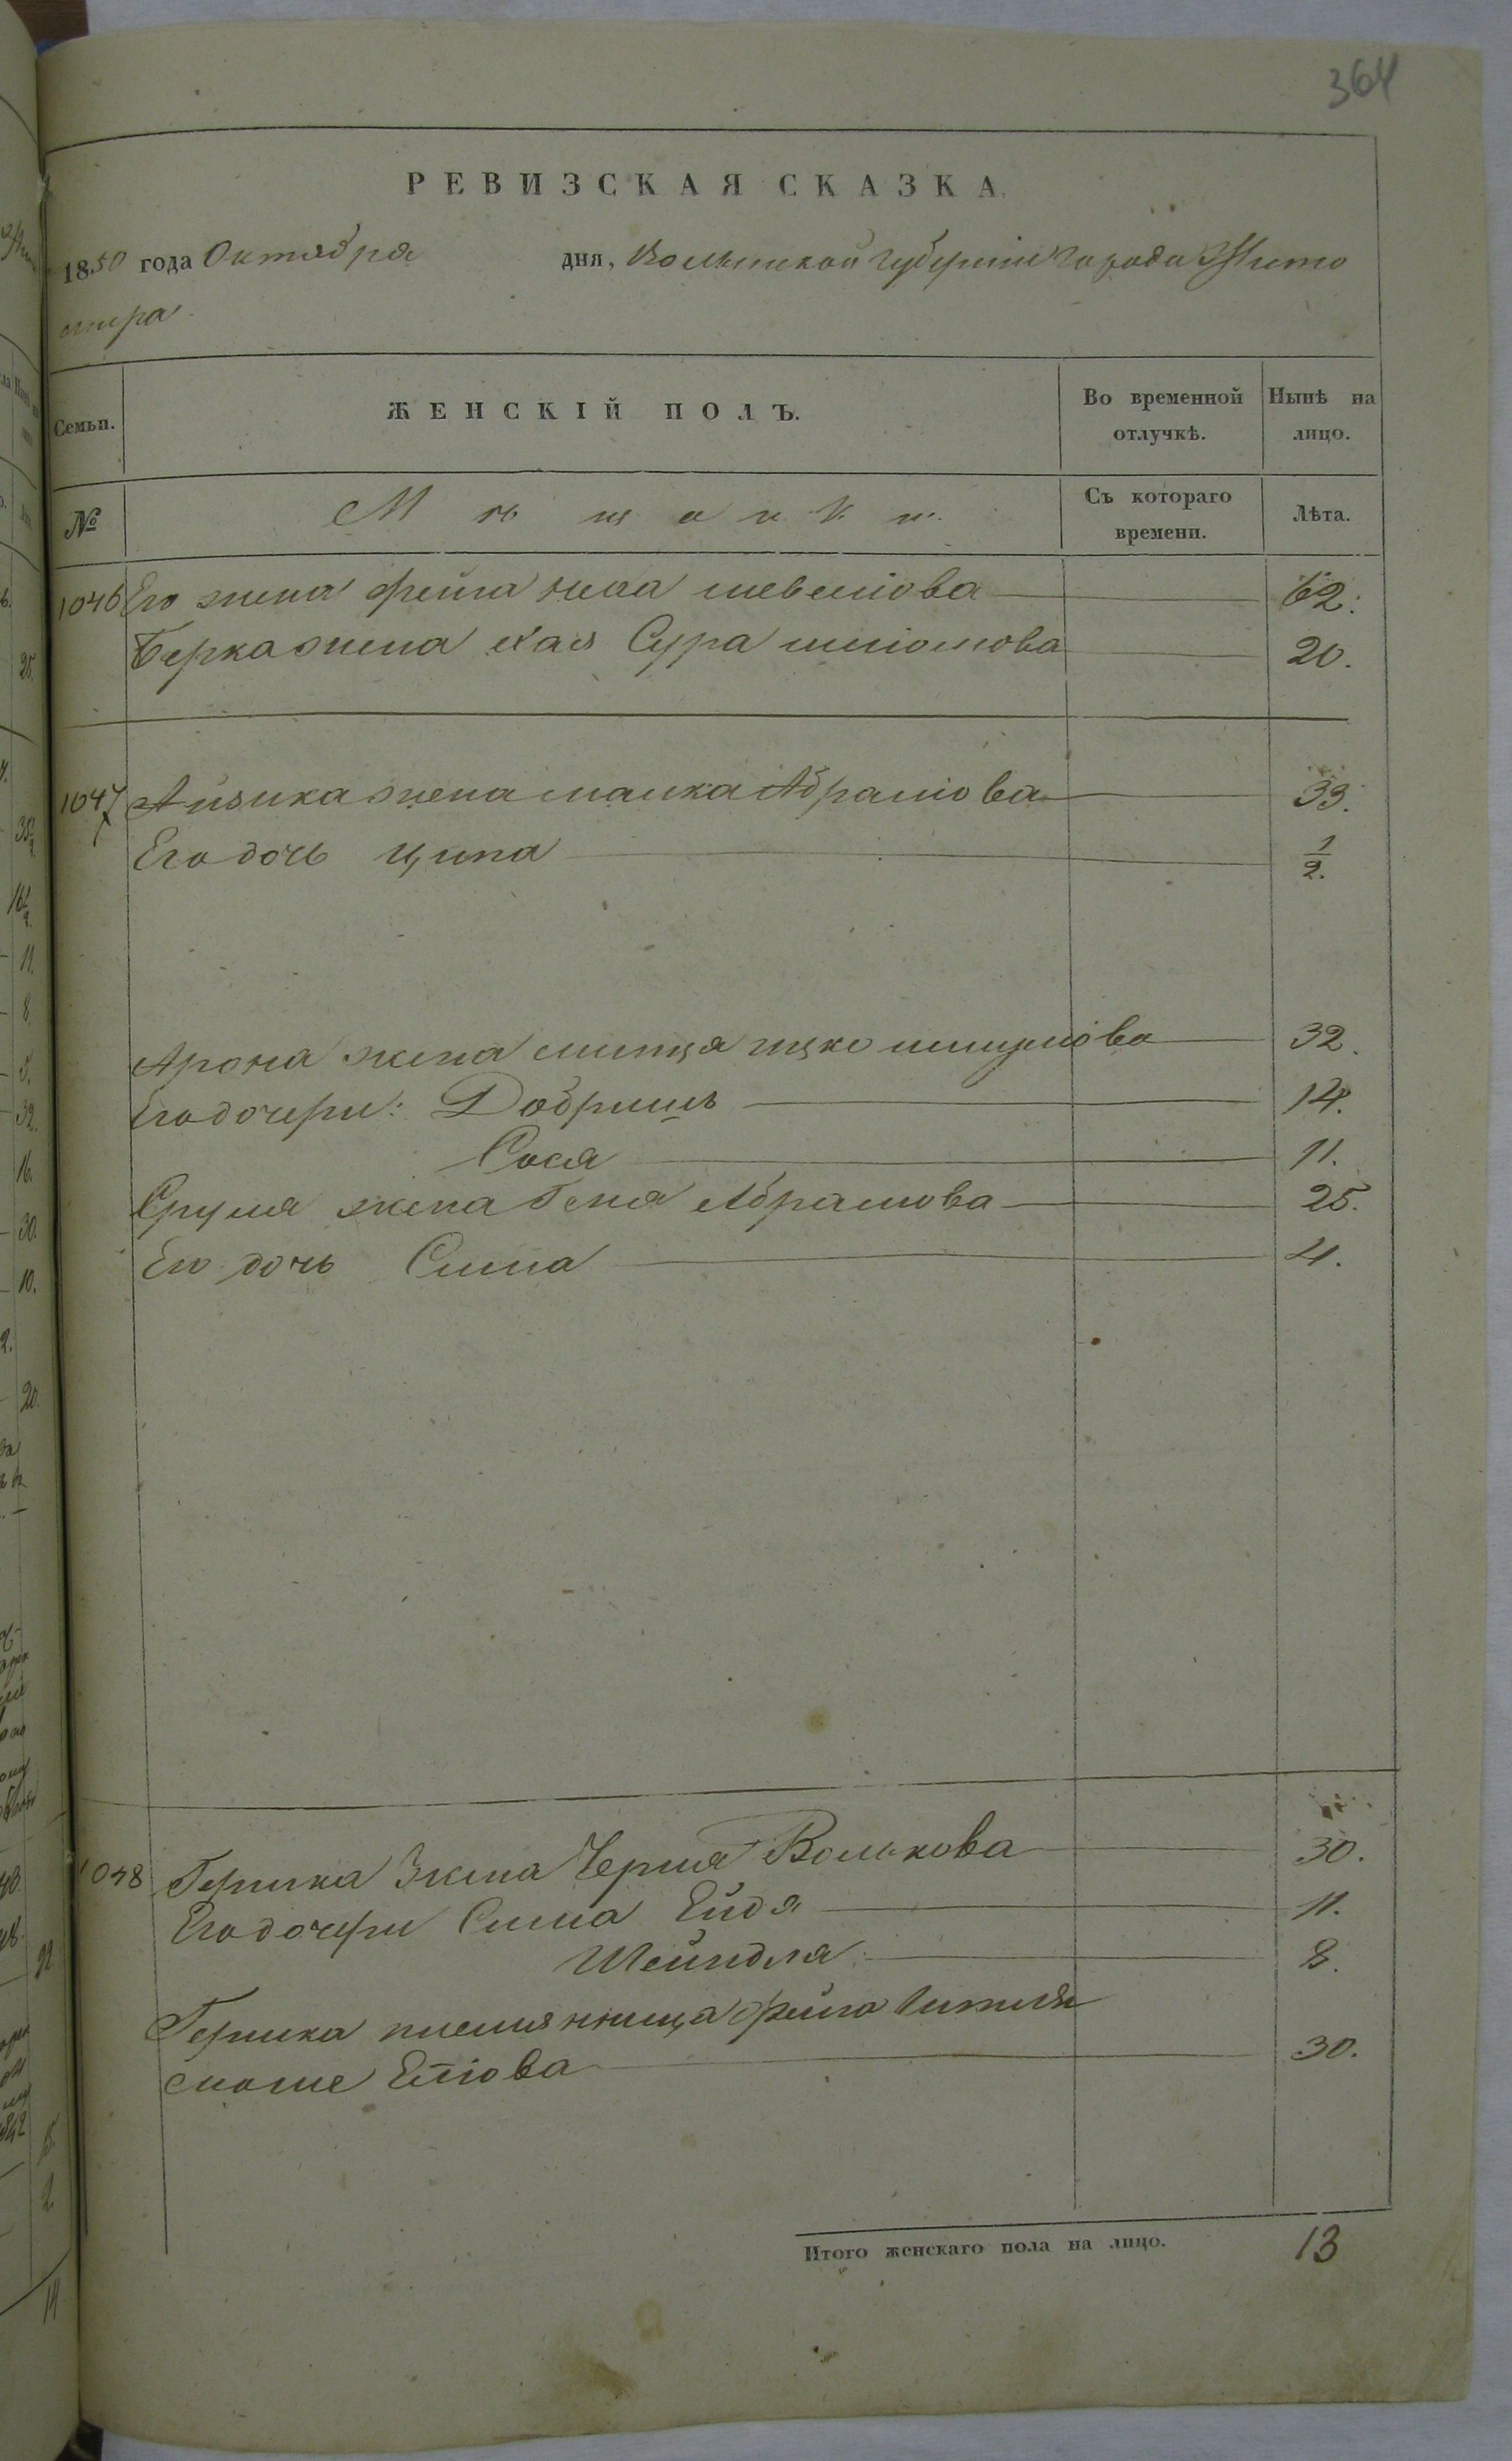 364
РЕВИЗСКАЯ СКАЗКА.
1850 года Октября дня, Волынской губерніи города Жито
мира
Семьи.
ЖЕНСКІЙ ПОЛЪ.
Во временной отлучкѣ.
Нынѣ на лицо.
№
Мѣщанки.
Съ котораго времени.
Лѣта.
1046 Его жена Фейга 62.
Берка жена Хая Сура Шліомова 20.
1047 Айзика жена Малка Абрамова 33.
Его дочь Ципа 1/2.
Арона жена 32.
Его дочери: Добришь 14.
Сося 11.
Сруля жена Геня Абрамова 25.
Его дочь Сима 4.
1048 Гершка Жена Черня Волькова 30.
Его дочери Сима Ейдя 11.
Шейндля 8.
Гершка племянница Фейга
30.
Итого женскаго пола на лицо. 13